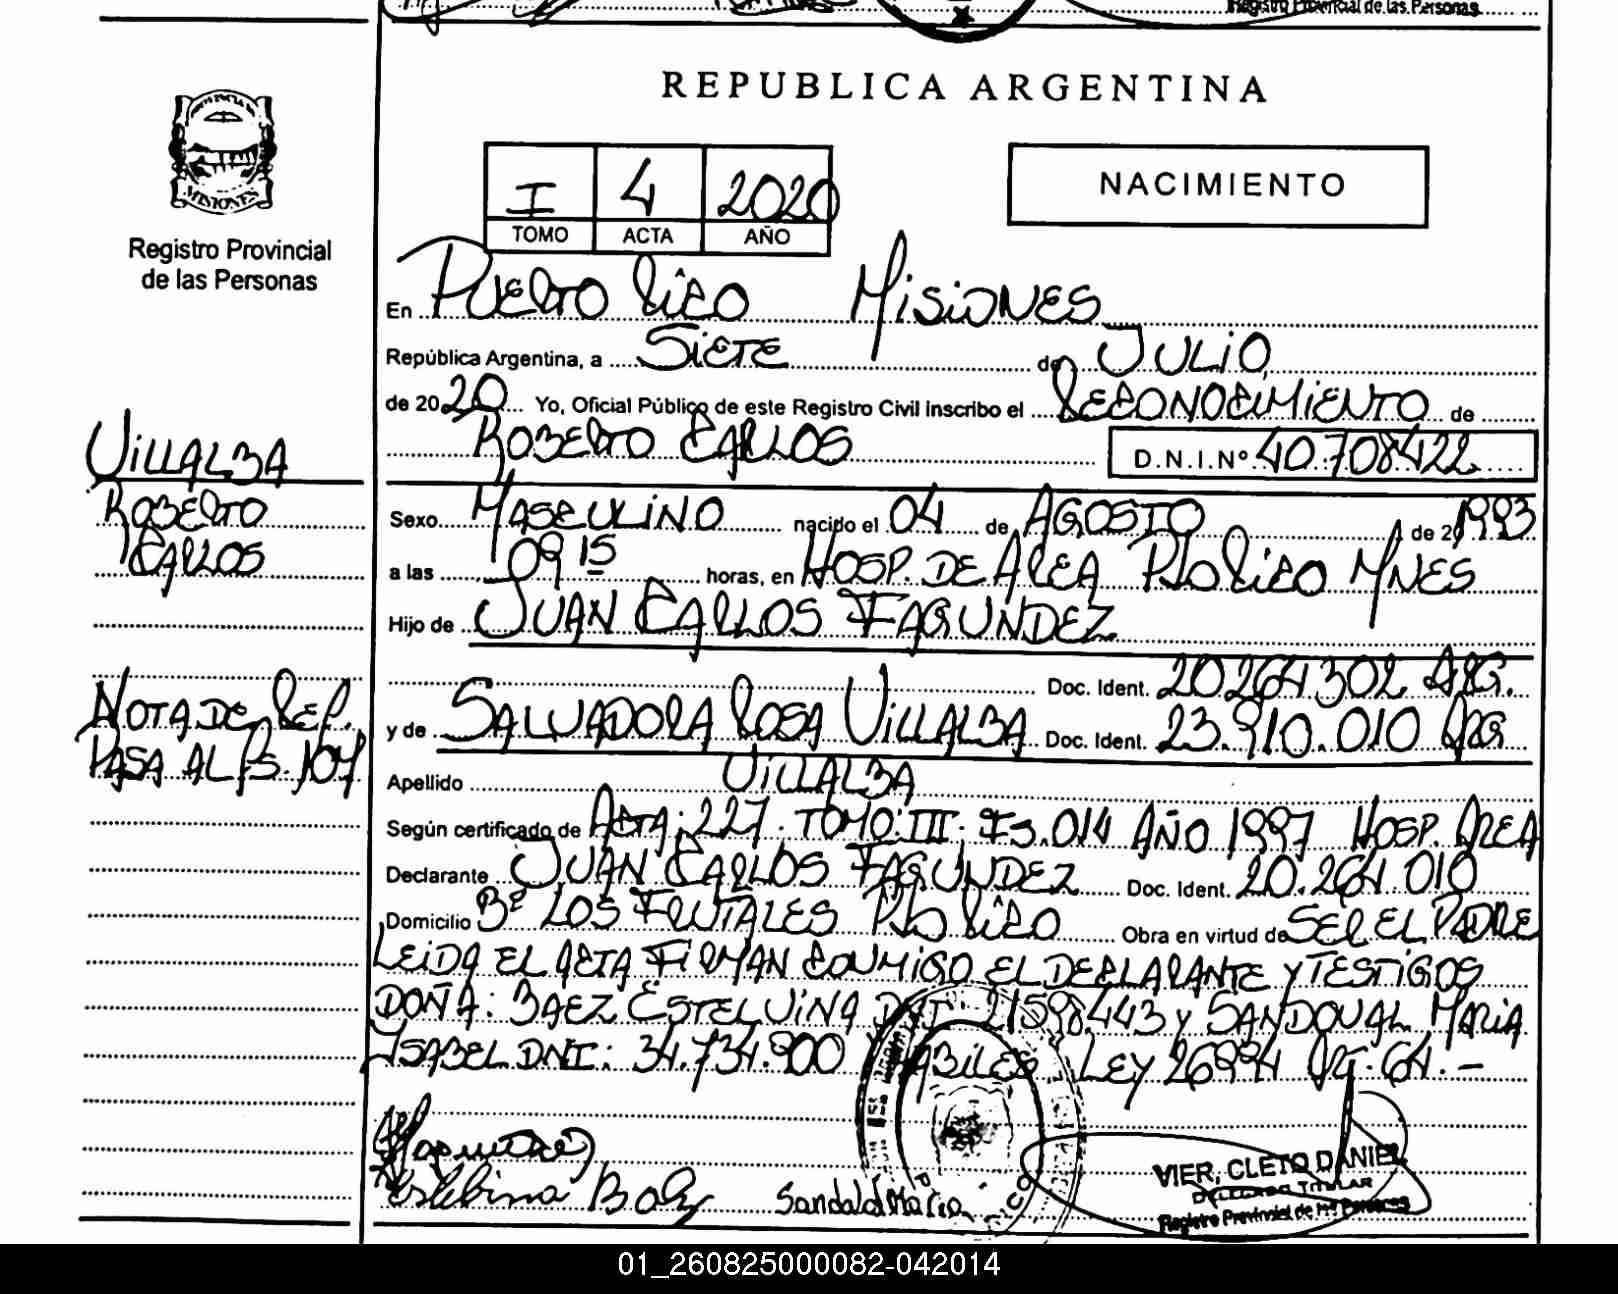 Registro Provincial de las Personas
REPUBLICA ARGENTINA
PROVINCIA DE
MISIONES
Registro Provincial
de las Personas
I 4 2020
TOMO ACTA AÑO
NACIMIENTO
En PUERTO RICO MISIONES
República Argentina, a SIETE de JULIO
de 2020 Yo, Oficial Público de este Registro Civil Inscribo el RECONOCIMIENTO de
ROBERTO CARLOS D.N.I.Nº 40708422
VILLALBA
ROBERTO
CARLOS
Sexo MASCULINO nacido el 04 de AGOSTO de 1993
a las 09 15 horas, en HOSP. DE AREA PTO RICO MNES
Hijo de JUAN CARLOS FAGUNDEZ
Doc. Ident. 20.264.302 ARG.
NOTA DE REF.
PASA AL FS. 107
y de SALVADORA ROSA VILLALBA Doc. Ident. 23.910.010 ARG
Apellido VILLALBA
Según certificado de ACTA: 227. TOMO: III. FS. 014 AÑO 1997 HOSP. AREA
Declarante JUAN CARLOS FAGUNDEZ Doc. Ident. 20.264.010
Domicilio Bº LOS FRUTALES PTO RICO Obra en virtud de SER EL PADRE
LEIDA EL ACTA FIRMAN CONMIGO EL DECLARANTE Y TESTIGOS
DOÑA: BAEZ ESTELVINA DNI 21598443 Y SANDOVAL MARIA
ISABEL DNI: 34.734.900 HABILES LEY 26994 ART. 64.-
Estelbina Baez
VIER, CLETO DANIEL
DELEGADO TITULAR
Registro Provincial de las Personas
01_260825000082-042014